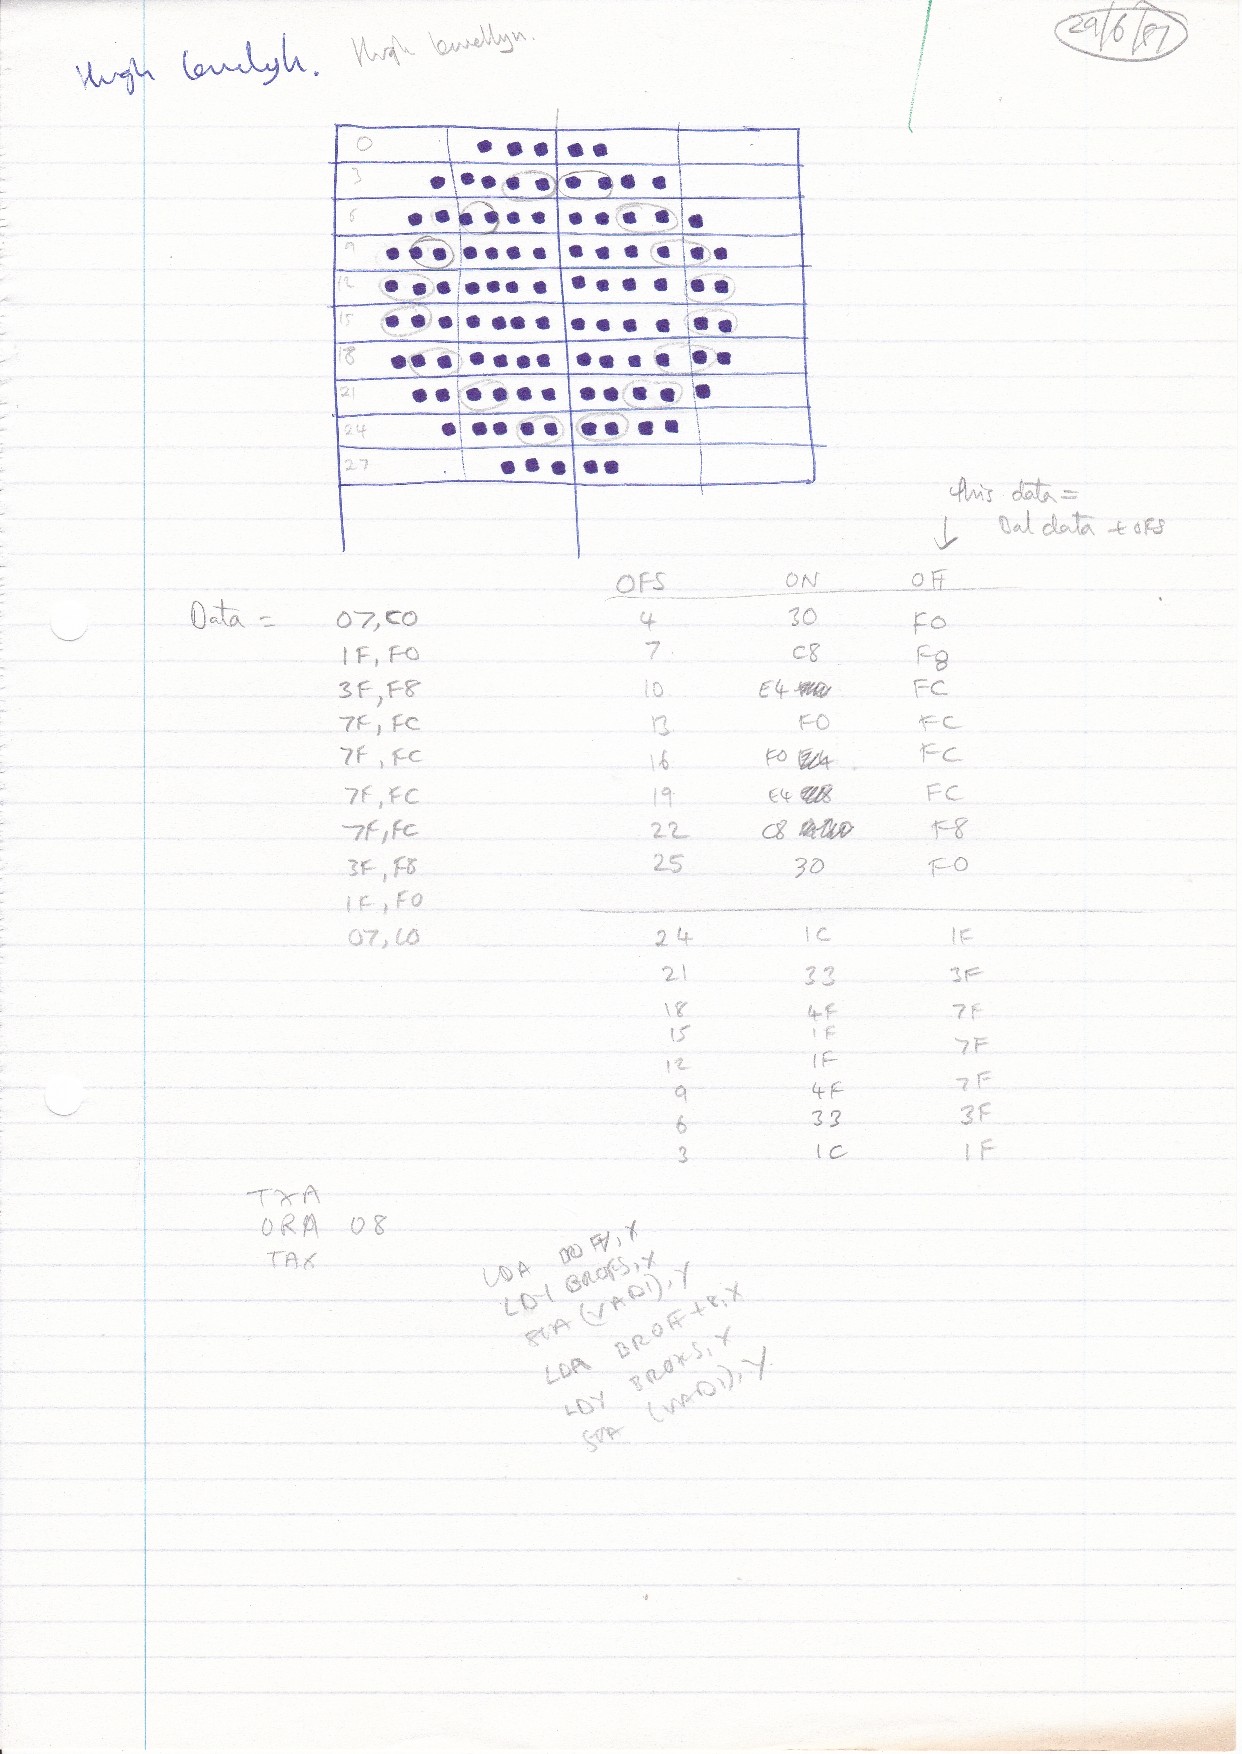 Hugh
Hugh
29/6/87
0
3
6
9
12
15
18
21
24
27
this data =
Dat data + OFS
OFS ON Off
Data = 07,C0 4 30 F0
1F,F0 7 C8 F8
3F,F8 10 E4 FC
7F,FC 13 F0 FC
7F,FC 16 F0 FC
7F,FC 19 E4 FC
7F,FC 22 C8 F8
3F,F8 25 30 F0
1F,F0
07,C0 24 1C 1F
21 33 3F
18 4F 7F
15 1F 7F
12 1F
9 4F 7F
6 33 3F
3 1C 1F
TXA
ORA 08
TAX
LDA
LDY BROFS,X
STA (VAD1),Y
LDA BROFF+8,X
LDY
STA (VAD1),Y